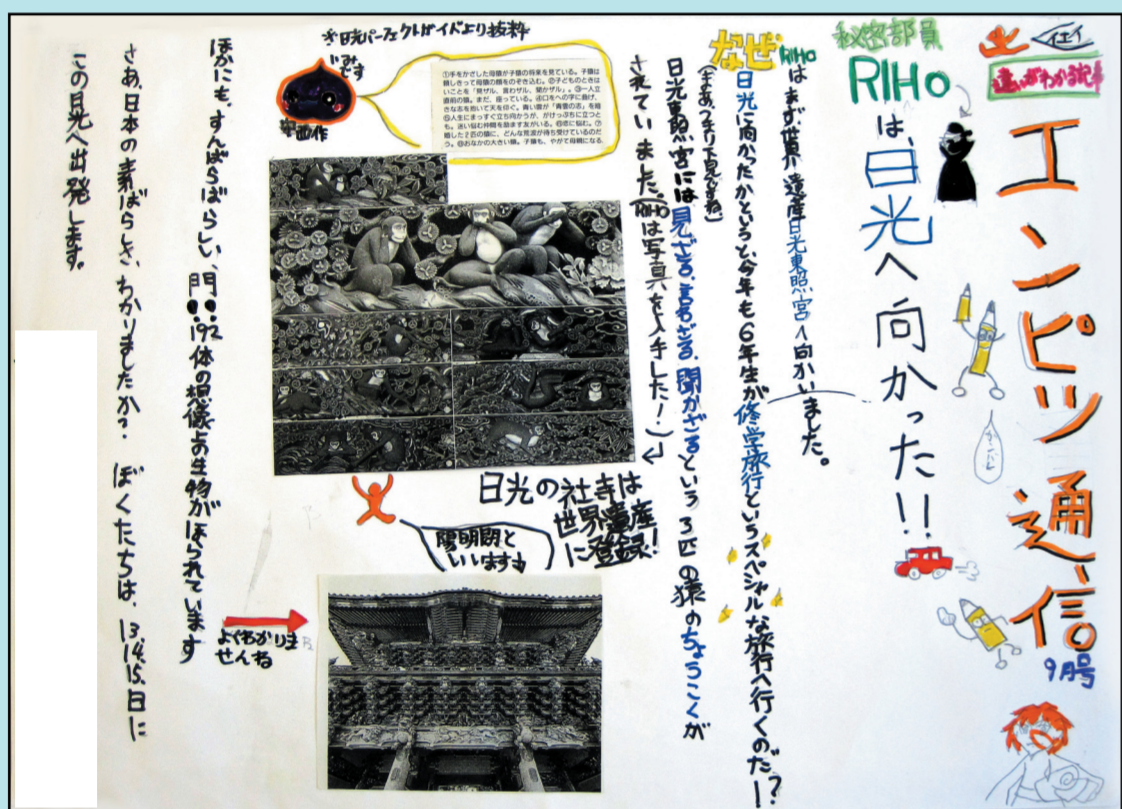 イエイ
違いがわかる記事
エンピツ通信
9月号
ガンバレ
秘密部員
RIHo
は、日光へ向かった!!
RIHoはまず世界遺産日光東照宮へ向かいました。
なぜ
日光に向かったかというと、今年も6年生が修学旅行というスペシャルな旅行へ行くのだー!?
(まあ、つまり下見ですね)
日光東照宮には見ざる、言わざる、聞かざるという3匹の猿のちょうこくが
されていました。(RIHoは写真を入手した!)
※日光パーフェクトガイドより抜粋
いみです
①手をかざした母猿が子猿の将来を見ている。子猿は
頼しきって母猿の顔をのぞき込む。②子どものときは
いことを「見ザル、言わザル、聞かザル」。③一人立
直前の猿。まだ、座っている。④口をへの字に曲げ、
きな志を抱いて天を仰ぐ。青い雲が「青雲の志」を暗
⑤人生にまっすぐ立ち向かうが、がけっぷちに立つと
も。迷い悩む仲間を励ます友がいる。⑥恋に悩む。⑦
婚した2匹の猿に、どんな荒波が待ち受けているのだ
う。⑧おなかの大きい猿。子猿も、やがて母親になる
日光の社寺は
世界遺産
に登録!
陽明門と
いいます
ほかにも、すんばらばらしい、門!!192体の想像上の生物がほられています
よくわかりま
せんね
さあ、日本の素ばらしさ、わかりましたか?ぼくたちは、13.14.15.日に
この日光へ出発します。